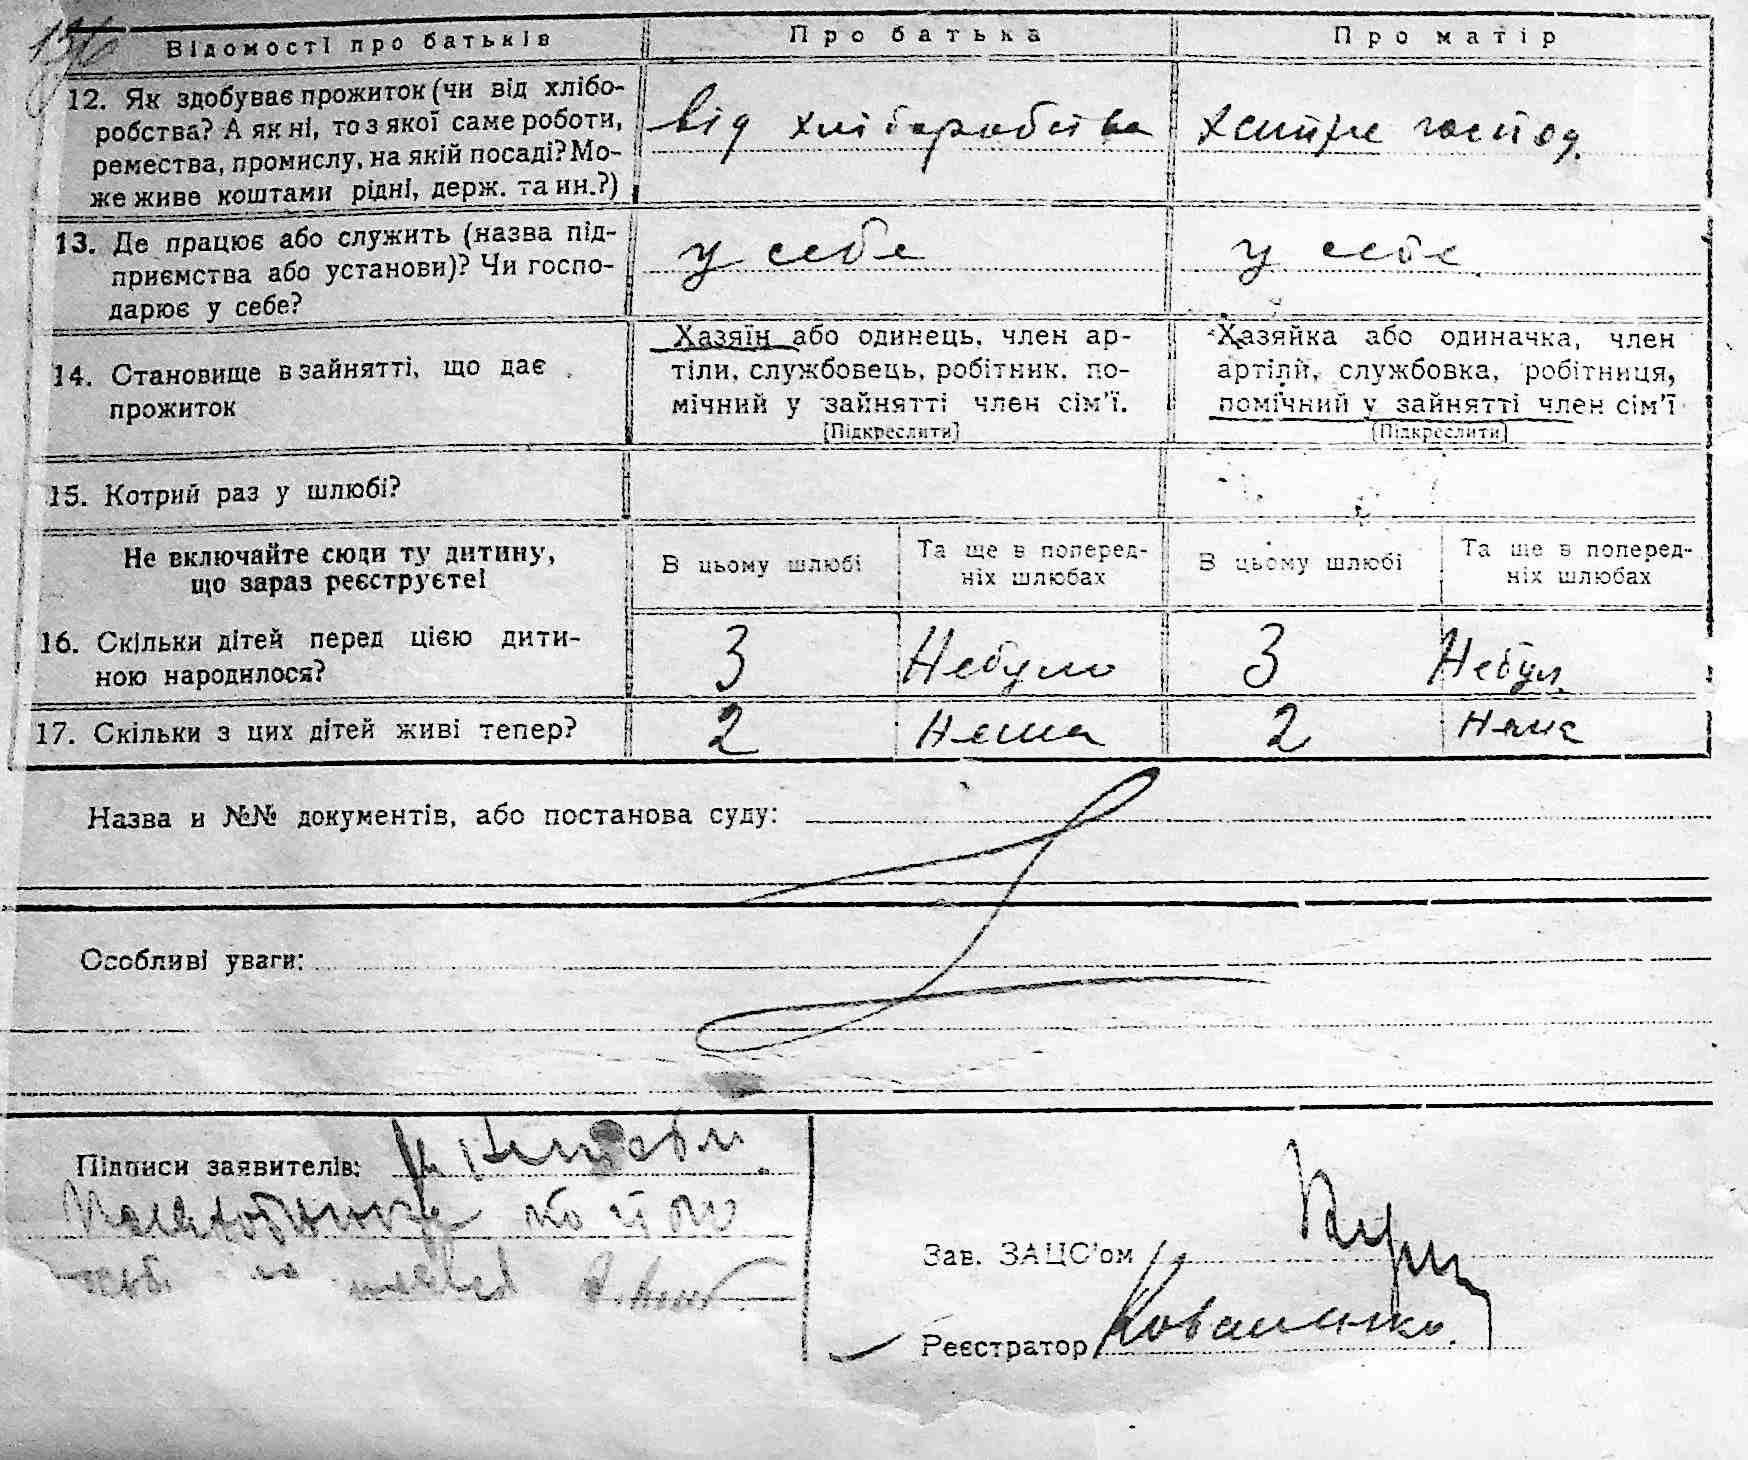 Відомості про батьків
Про батька
Про матір
12. Як здобуває прожиток (чи від хлібо-
робства? А як ні, то з якої саме роботи,
ремества, промислу, на якій посаді? Мо-
же живе коштами рідні, держ. та ин.?)
від хліборобства
господ.
13. Де працює або служить (назва під-
приємства або установи)? Чи госпо-
дарює у себе?
у себе
у себе
14. Становище в зайнятті, що дає
прожиток
Хазяїн або одинець, член ар-
тіли, службовець, робітник, по-
мічний у зайнятті член сім'ї.
(Підкреслити)
Хазяйка або одиначка, член
артілі, службовка, робітниця,
помічний у зайнятті член сім'ї
(Підкреслити)
15. Котрий раз у шлюбі?
Не включайте сюди ту дитину,
що зараз реєструєте!
В цьому шлюбі
Та ще в поперед-
ніх шлюбах
В цьому шлюбі
Та ще в поперед-
ніх шлюбах
16. Скільки дітей перед цією дити-
ною народилося?
3
Небуло
3
Небул
17. Скільки з цих дітей живі тепер?
2
Нема
2
Нема
Назва и №№ документів, або постанова суду:
Особливі уваги:
Підписи заявителів:
Зав. ЗАЦС'ом
Реєстратор Коваленко.